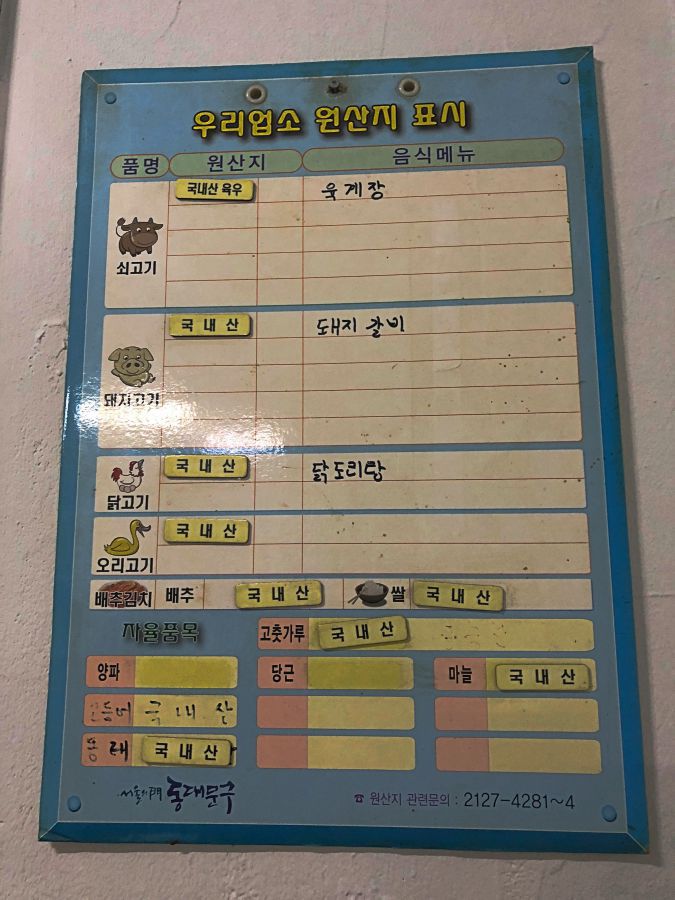 우리업소 원산지 표시
품명 원산지 음식메뉴
국내산 육우 육계장
쇠고기
국내산 돼지갈비
돼지고기
국내산 닭도리탕
닭고기
국내산
오리고기
배추김치 배추 국내산 쌀 국내산
자율품목 고춧가루 국내산
양파 당근 마늘 국내산
국내산
국내산
서울의門 동대문구
☎ 원산지 관련문의 : 2127-4281~4